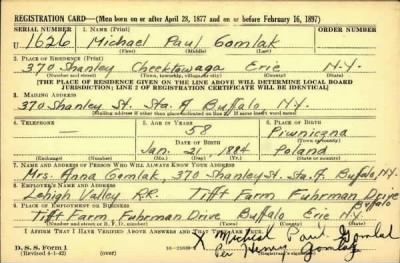 REGISTRATION CARD—(Men born on or after April 28, 1877 and on or before February 16, 1897)
SERIAL NUMBER 1. NAME (Print) ORDER NUMBER
U 1626 Michael Paul Gomlak
(First) (Middle) (Last)
2. PLACE OF RESIDENCE (Print)
370 Shanley Cheektowaga Erie N.Y.
(Number and street) (Town, township, village, or city) (County) (State)
[THE PLACE OF RESIDENCE GIVEN ON THE LINE ABOVE WILL DETERMINE LOCAL BOARD
JURISDICTION; LINE 2 OF REGISTRATION CERTIFICATE WILL BE IDENTICAL]
3. MAILING ADDRESS
370 Shanley St. Sta. A Buffalo N.Y.
[Mailing address if other than place indicated on line 2. If same insert word same]
4. TELEPHONE 5. AGE IN YEARS 6. PLACE OF BIRTH
— 58 Piwniczna
DATE OF BIRTH (Town or county)
Jan. 21 1884 Poland
(Exchange) (Number) (Mo.) (Day) (Yr.) (State or country)
7. NAME AND ADDRESS OF PERSON WHO WILL ALWAYS KNOW YOUR ADDRESS
Mrs. Anna Gomlak, 370 Shanley St. Sta. A, Buffalo, N.Y.
8. EMPLOYER'S NAME AND ADDRESS
Lehigh Valley R.R. Tifft Farm Fuhrman Drive
Buffalo
9. PLACE OF EMPLOYMENT OR BUSINESS
Tifft Farm, Fuhrman Drive Buffalo Erie N.Y.
(Number and street or R. F. D. number) (Town) (County) (State)
I AFFIRM THAT I HAVE VERIFIED ABOVE ANSWERS AND THAT THEY ARE TRUE.
X Michael Paul Gomlak
Per Henry Gomlak
D. S. S. Form 1
(Revised 4-1-42) (over)